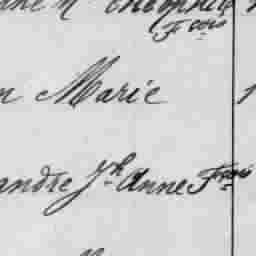 Frois
n Marie
andre Jh Anne Frois